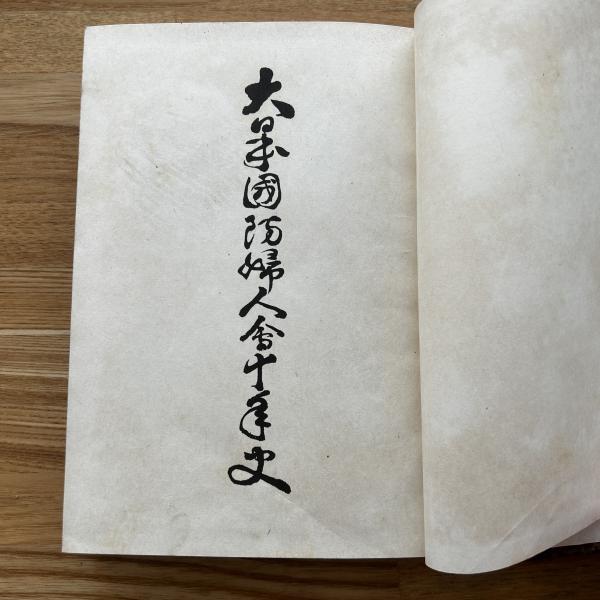 大日本國防婦人會十年史